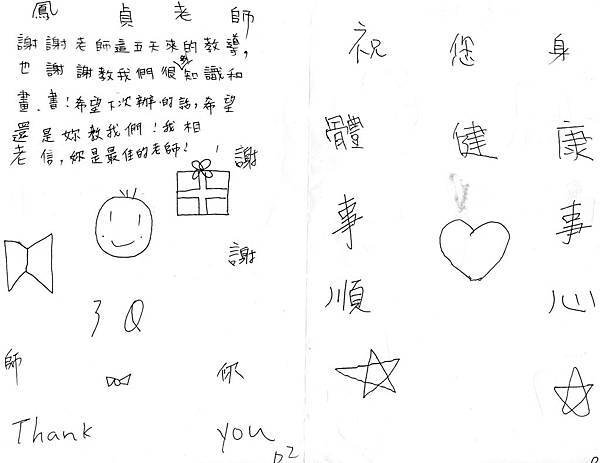 鳳貞老師
謝謝老師這五天來的教導,
也謝謝教我們很多知識和
畫、書!希望下次辦的話,希望
還是妳教我們!我相
老 信,妳是最佳的老師! 謝
謝
3Q
師 你
Thank you
祝您身
體健康
事事
順心